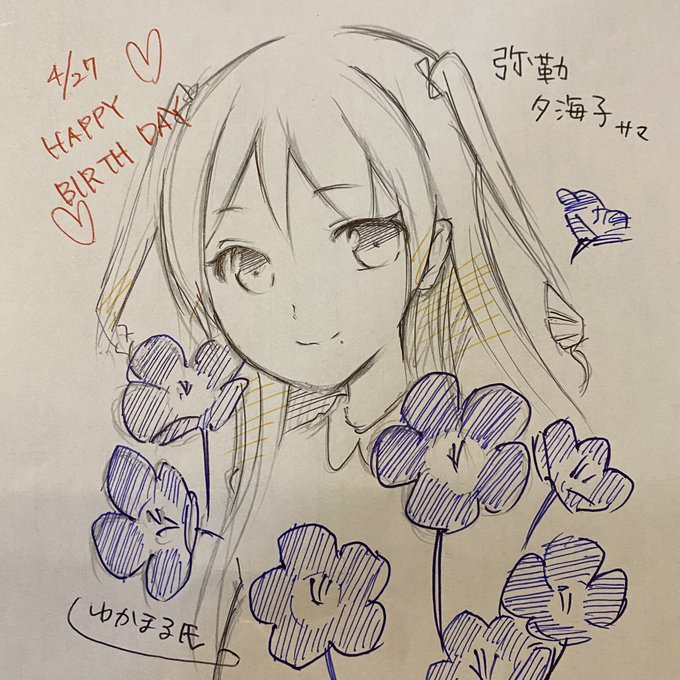 4/27
HAPPY
BIRTH DAY
弥勒
夕海子サマ
ゆかまる氏